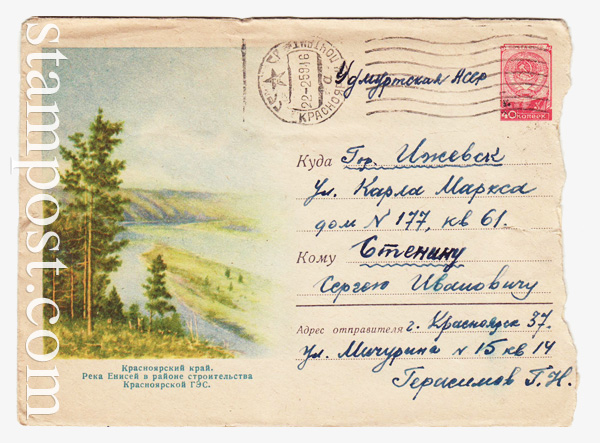 Удмуртская АССР
40 КОПЕЕК
Куда Гор. Ижевск
ул. Карла Маркса
дом N 177, кв 61.
Кому Стенину
Сергею Ивановичу
Адрес отправителя г. Красноярск 37.
ул. Мичурина N 15 кв 14
Герасимов Г. Н.
Красноярский край.
Река Енисей в районе строительства
Красноярской ГЭС.
stamppost.com